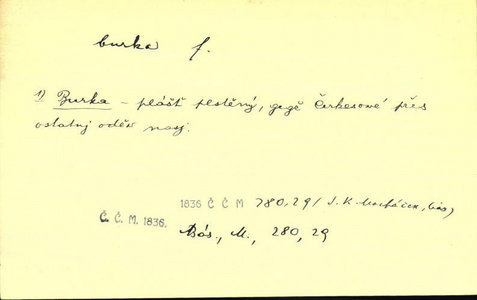 burka f.
1) Burka – plášť plstěný, gegž Čerkesové přes
ostatnj oděv nosj.
1836 Č Č M 280,29/ J. K. Macháček, bás,
Č. Č. M. 1836.
Bás., M., 280, 29